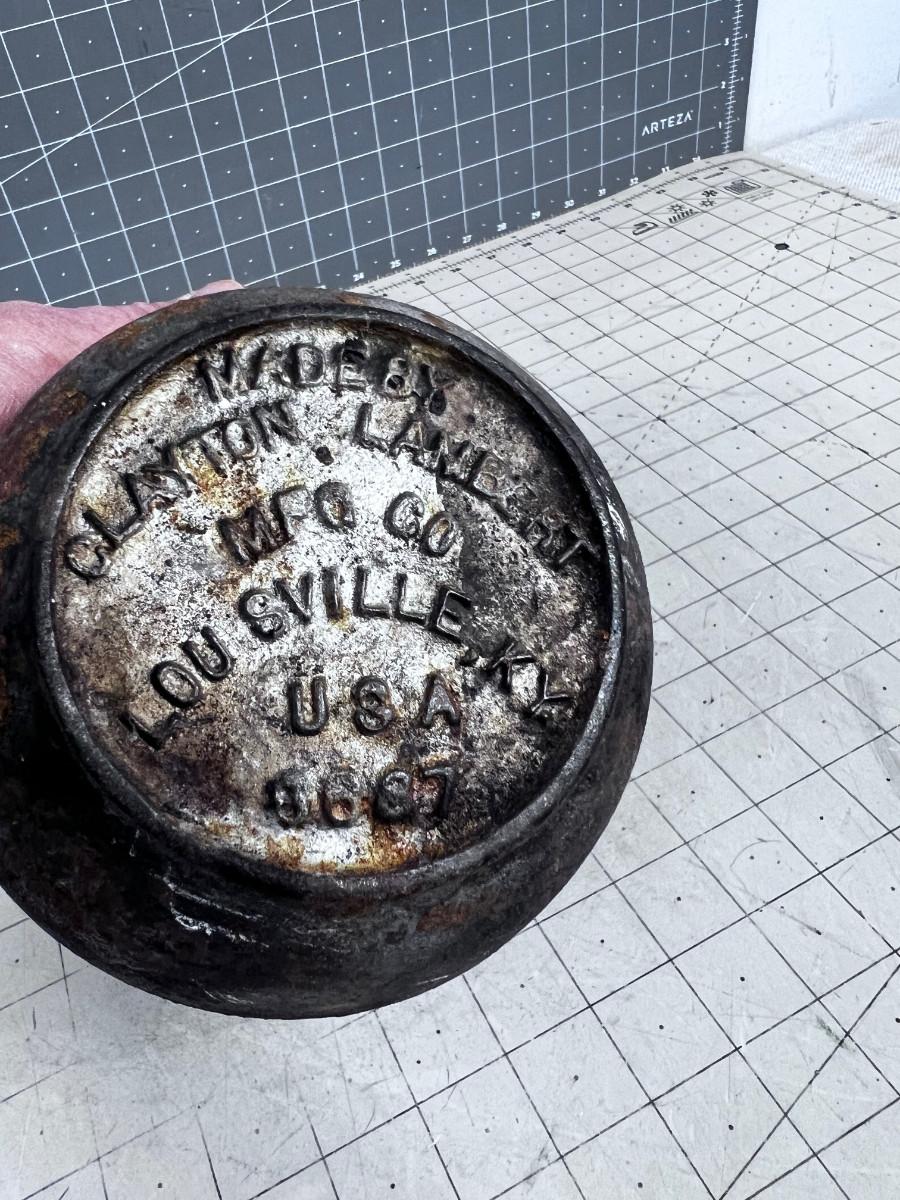 ARTEZA
3
2
1
24 25 26 27 28 29 30 31 32
MADE BY
CLAYTON LAMBERT
MFG CO
LOUISVILLE, KY
USA